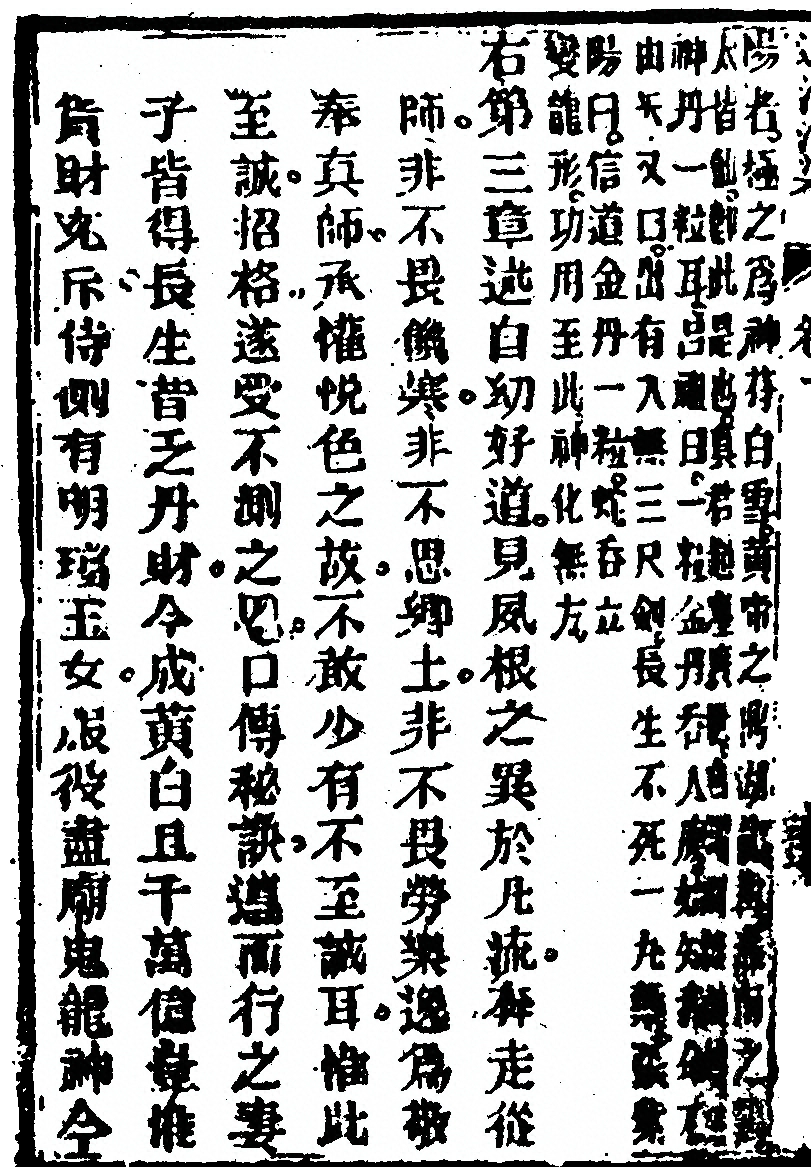 陽者極之為神符白雪黃帝之鼎湖
太皆仙卽此是也真君
神丹一粒耳呂祖曰一粒金丹吞入腹始知我命
由天又曰出有入無三尺劍長生不死一丸藥張紫
陽曰信道金丹一粒蛇吞立
變龍形功用至此神化無方
右第三章述自幼好道見夙根之異於凡流奔走從
師非不畏饑寒非不思鄉土非不畏勞樂逸為敬
奉真師承懽悅色之故不敢少有不至誠耳惟此
至誠招格遂受不測之恩口傳秘訣遵而行之妻
子皆得長生昔乏丹財今成黃白且千萬億量堆
貨財充斥侍側有明璫玉女服役盡廟鬼龍神今